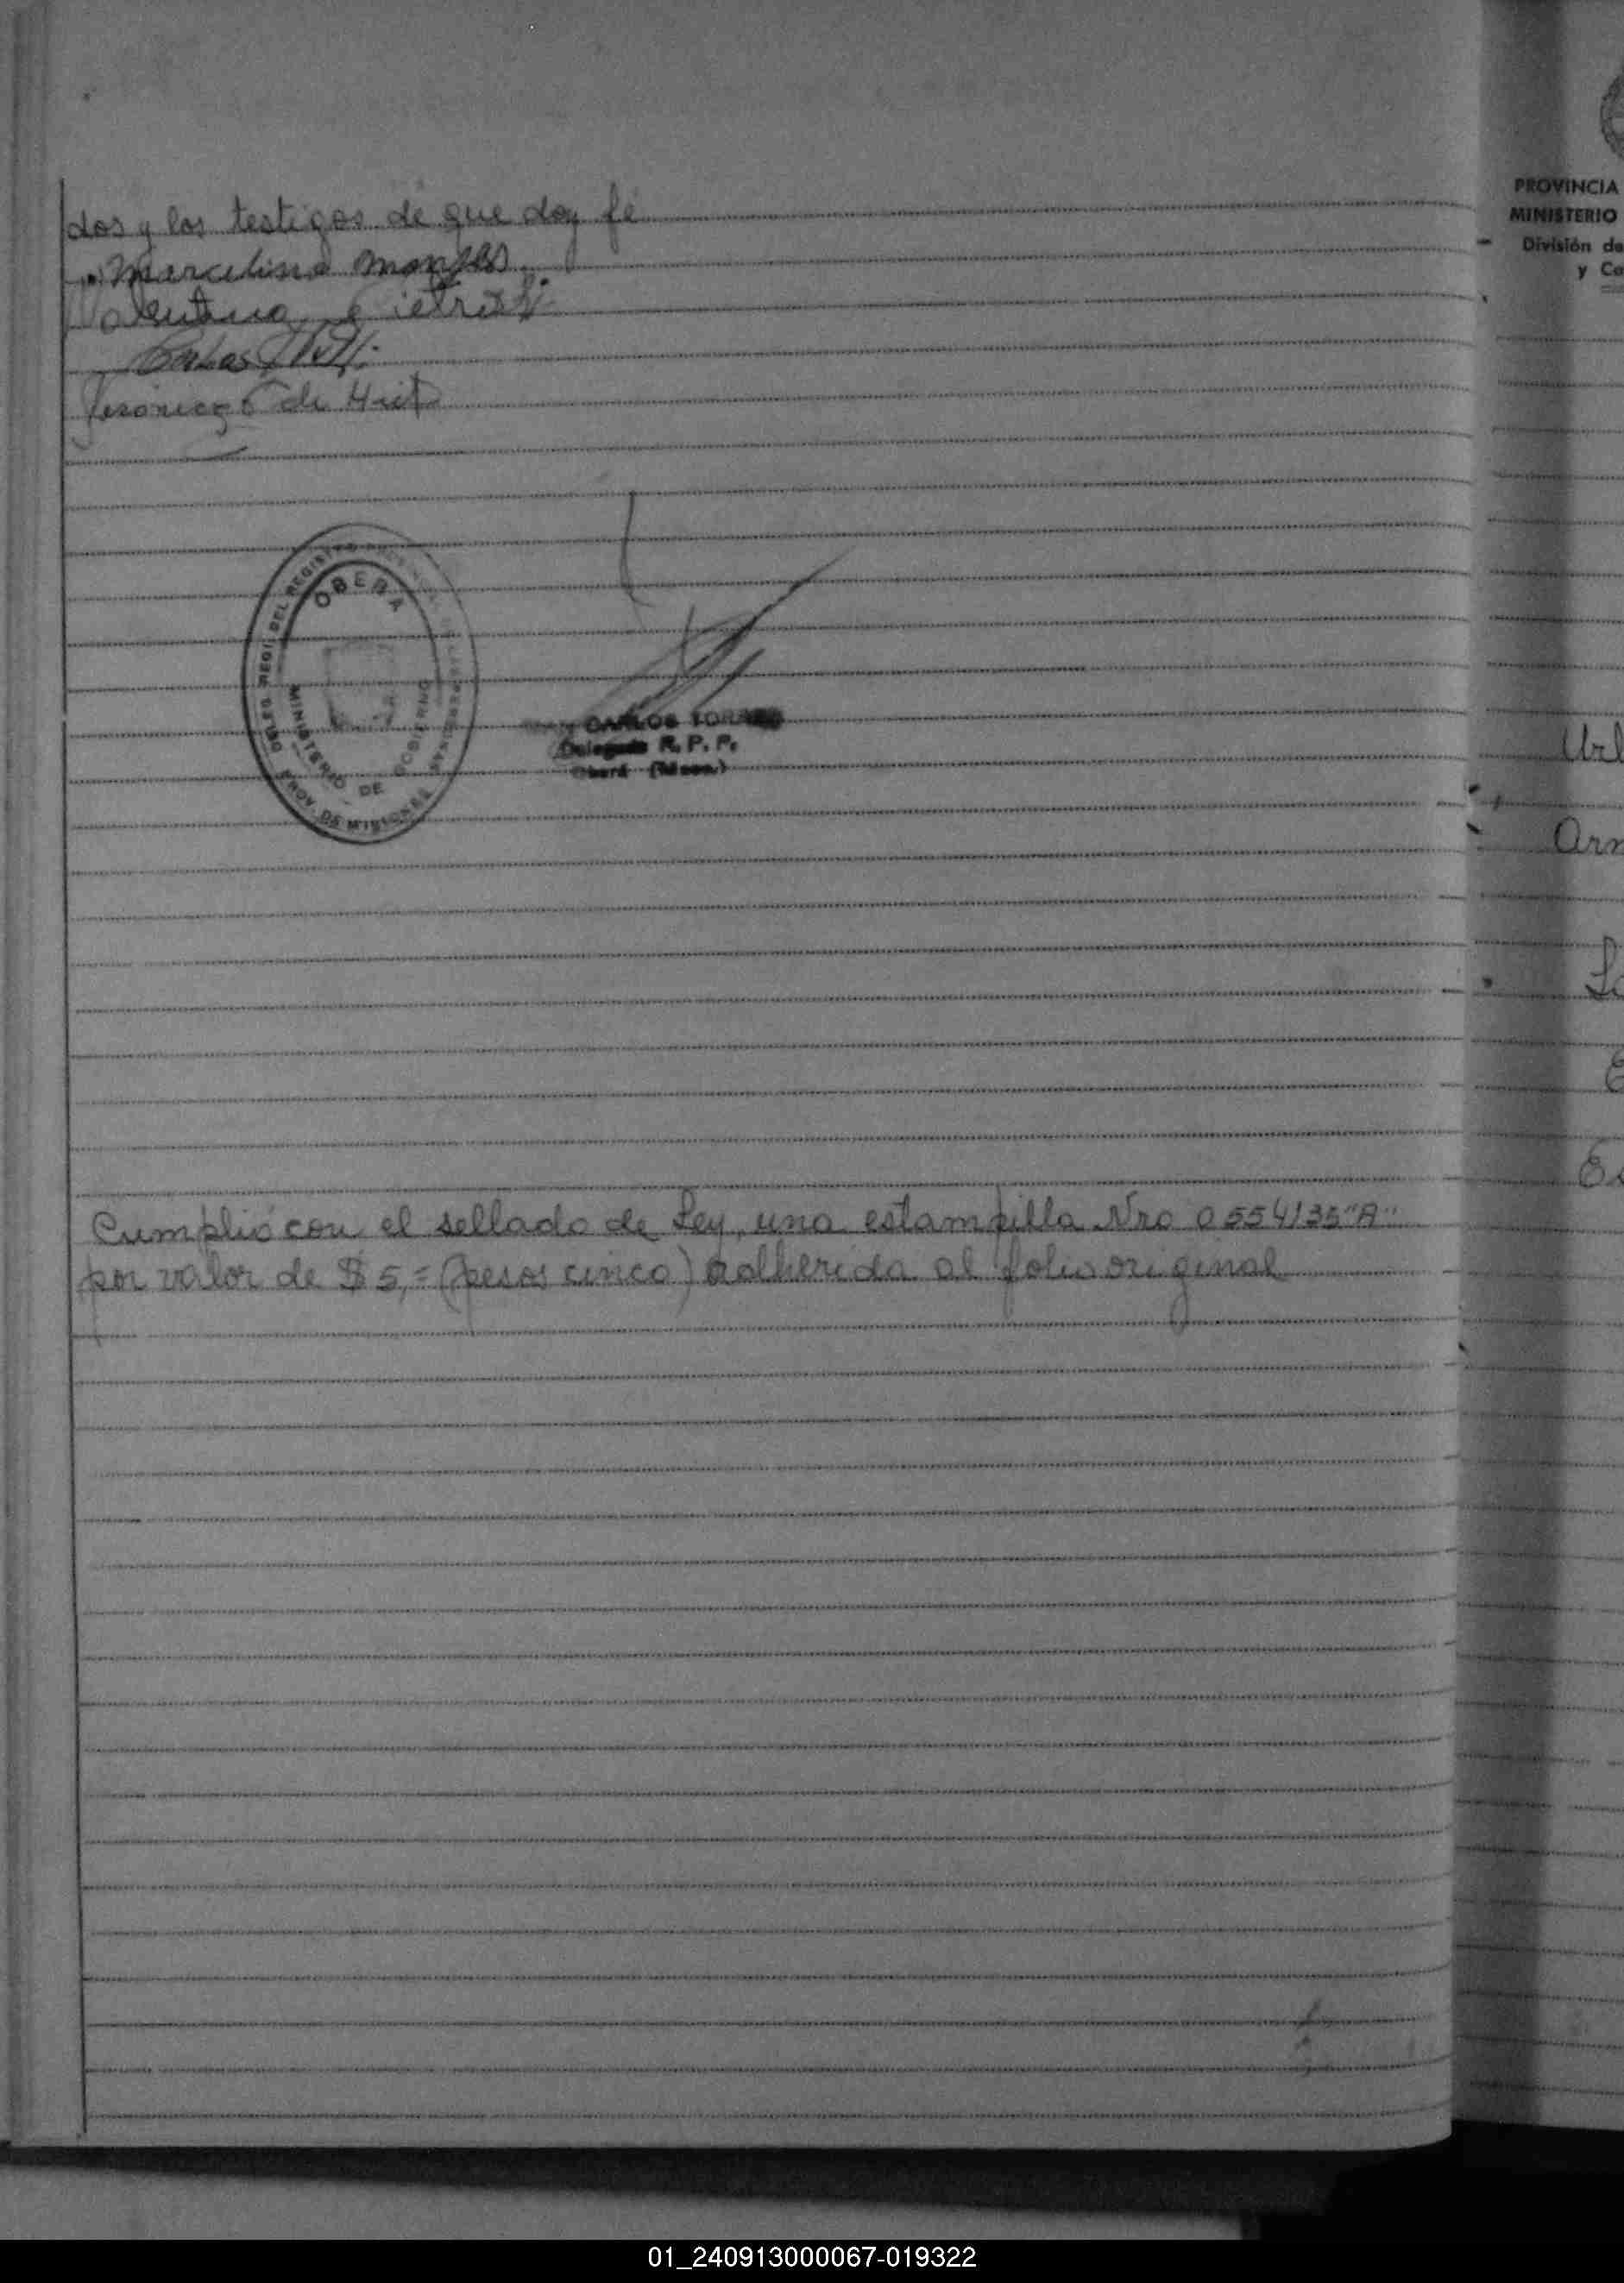 dos y los testigos de que doy fé
Marcelino
Valentina
Carlos
de
OBERA
MINISTERIO DE GOBIERNO
PROV. DE MISIONES
CARLOS TORRES
Delegado R. P. P.
Oberá (Mnes.)
Cumplió con el sellado de Ley, una estampilla Nro 0554135 "A"
por valor de $ 5,= (pesos cinco) adherida al folio original
PROVINCIA
MINISTERIO
División de
y Ca
Url
Arm
E
Es
01_240913000067-019322